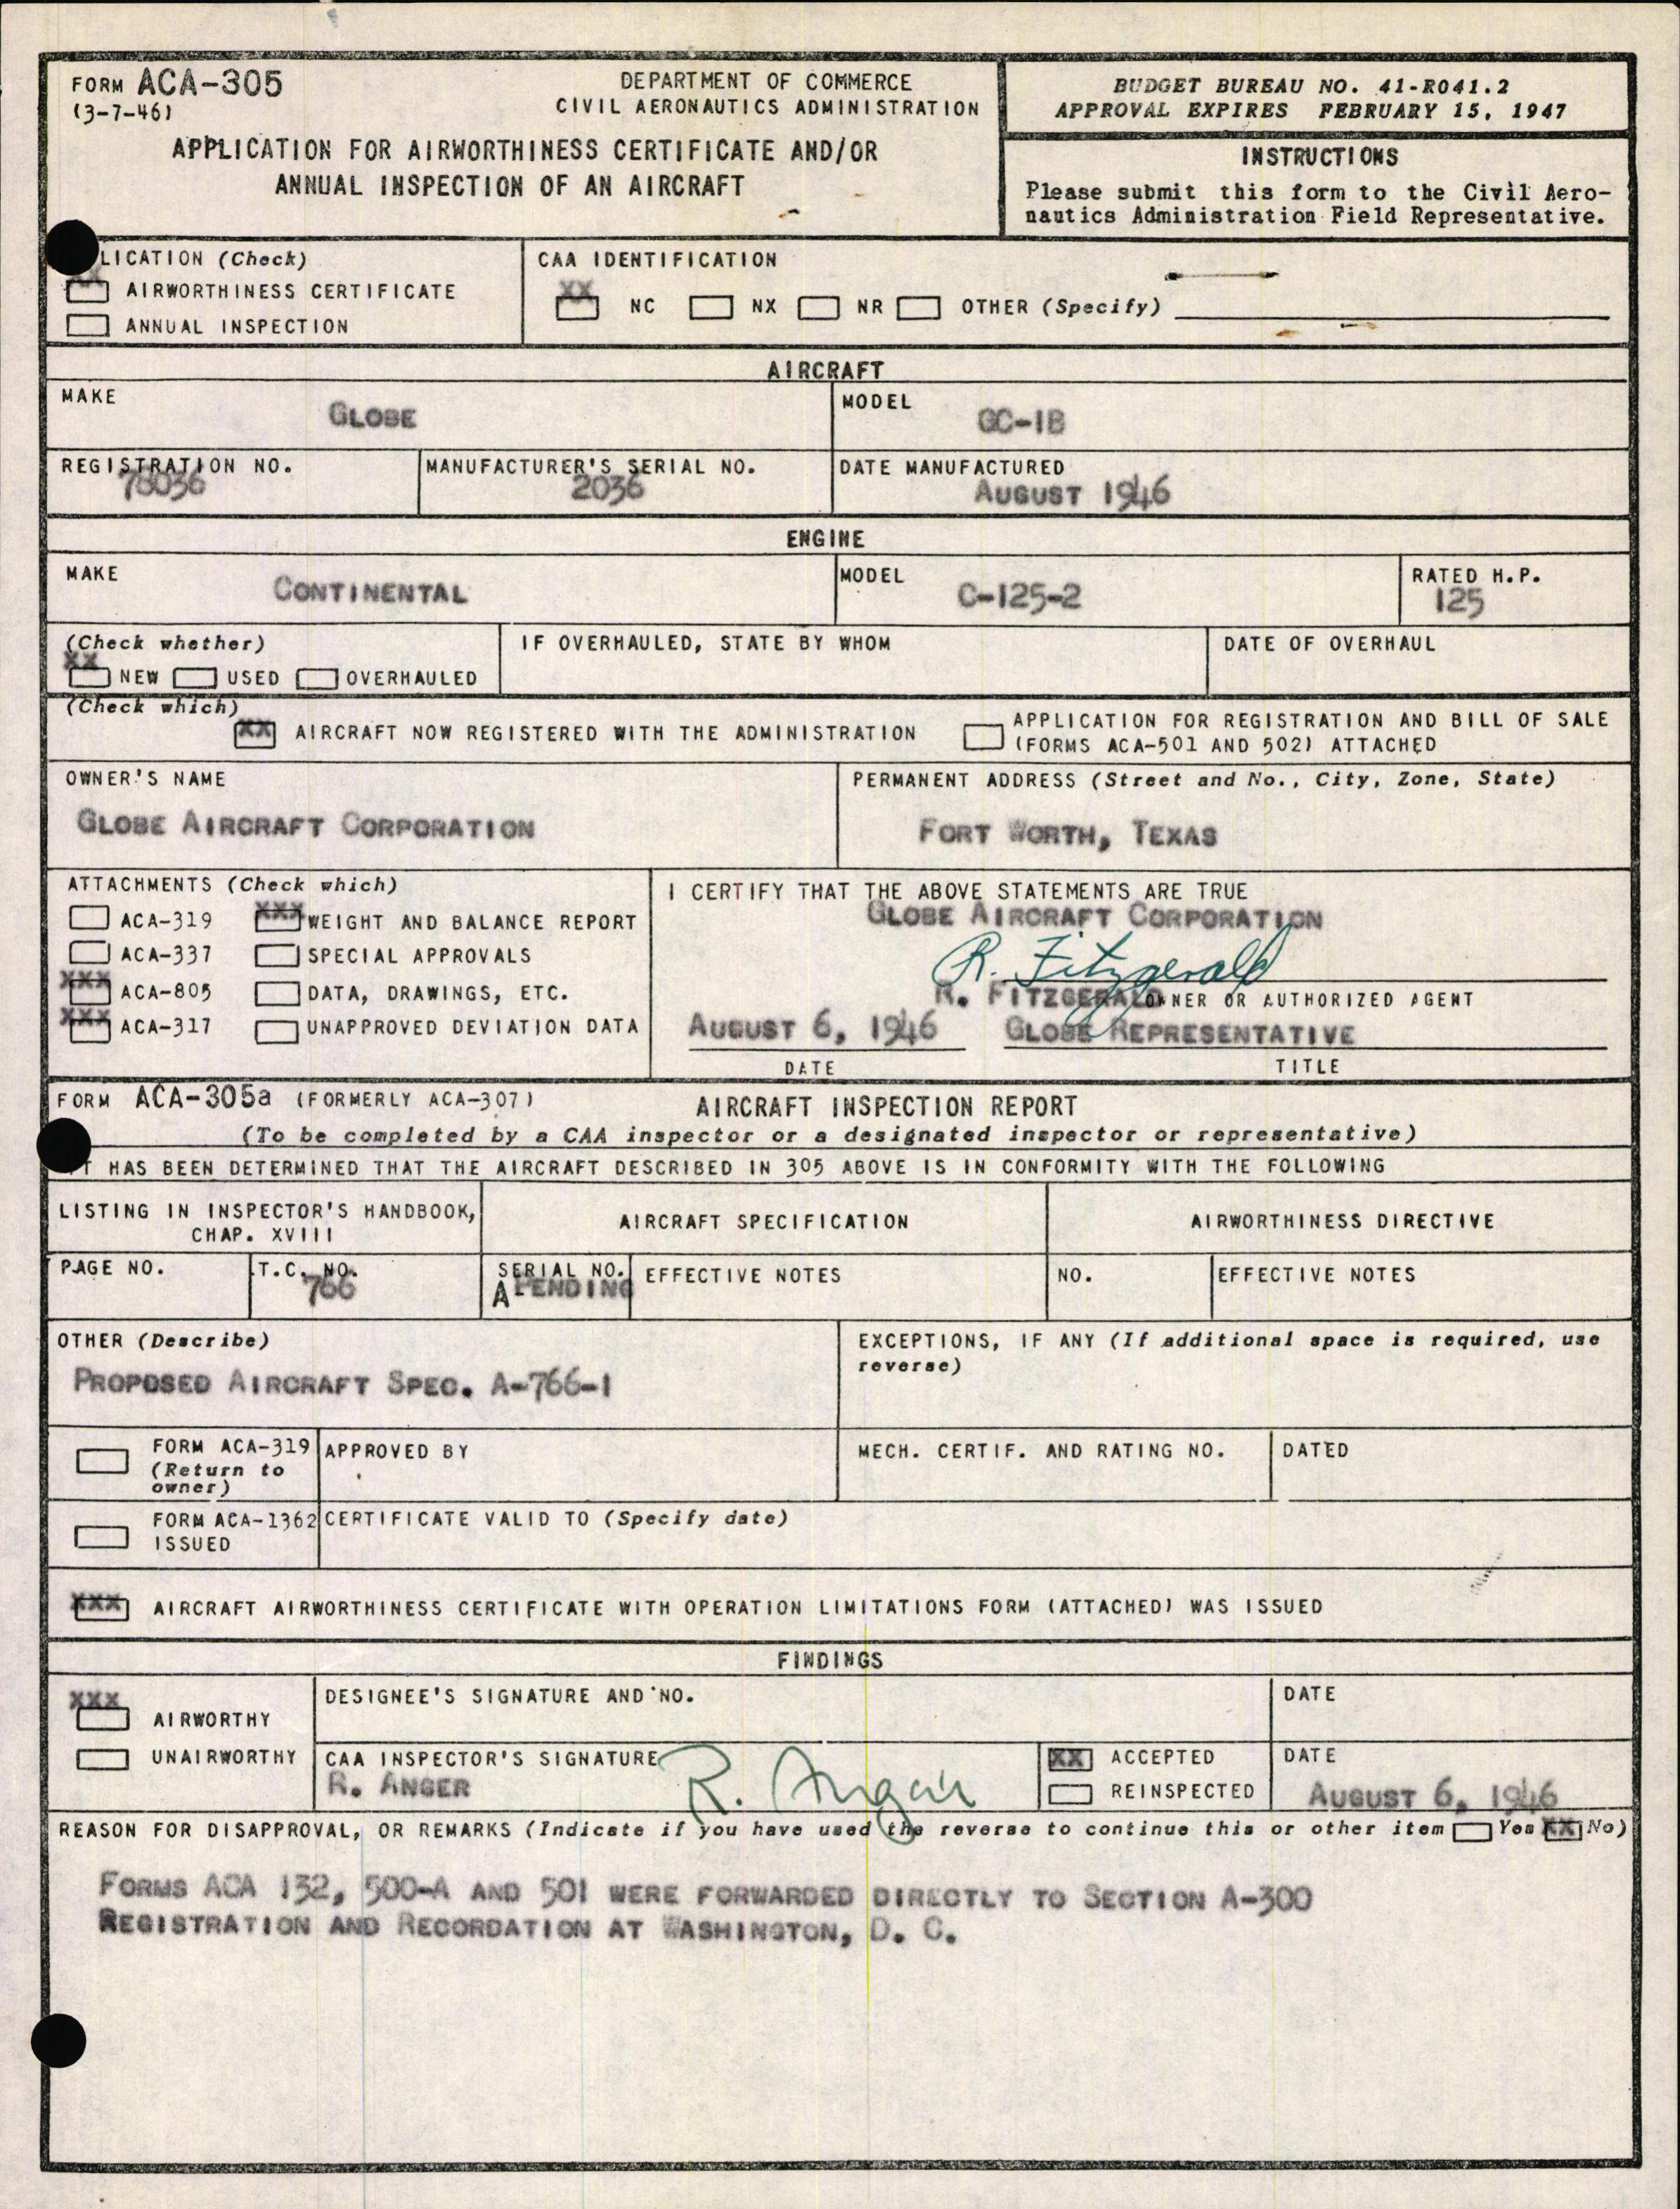 FORM ACA-305
(3-7-46)
DEPARTMENT OF COMMERCE
CIVIL AERONAUTICS ADMINISTRATION
APPLICATION FOR AIRWORTHINESS CERTIFICATE AND/OR
ANNUAL INSPECTION OF AN AIRCRAFT
BUDGET BUREAU NO. 41-R041.2
APPROVAL EXPIRES FEBRUARY 15, 1947
INSTRUCTIONS
Please submit this form to the Civil Aero-
nautics Administration Field Representative.
LICATION (Check)
XX AIRWORTHINESS CERTIFICATE
ANNUAL INSPECTION
CAA IDENTIFICATION
XX NC NX NR OTHER (Specify)
AIRCRAFT
MAKE
GLOBE
MODEL
GC-1B
REGISTRATION NO.
78036
MANUFACTURER'S SERIAL NO.
2036
DATE MANUFACTURED
AUGUST 1946
ENGINE
MAKE
CONTINENTAL
MODEL
C-125-2
RATED H.P.
125
(Check whether)
XX NEW USED OVERHAULED
IF OVERHAULED, STATE BY WHOM
DATE OF OVERHAUL
(Check which)
XX AIRCRAFT NOW REGISTERED WITH THE ADMINISTRATION
APPLICATION FOR REGISTRATION AND BILL OF SALE
(FORMS ACA-501 AND 502) ATTACHED
OWNER'S NAME
GLOBE AIRCRAFT CORPORATION
PERMANENT ADDRESS (Street and No., City, Zone, State)
FORT WORTH, TEXAS
ATTACHMENTS (Check which)
ACA-319 XXX WEIGHT AND BALANCE REPORT
ACA-337 SPECIAL APPROVALS
XXX ACA-805 DATA, DRAWINGS, ETC.
XXX ACA-317 UNAPPROVED DEVIATION DATA
I CERTIFY THAT THE ABOVE STATEMENTS ARE TRUE
GLOBE AIRCRAFT CORPORATION
R. Fitzgerald
R. FITZGERALD OWNER OR AUTHORIZED AGENT
AUGUST 6, 1946 GLOBE REPRESENTATIVE
DATE TITLE
FORM ACA-305a (FORMERLY ACA-307)
AIRCRAFT INSPECTION REPORT
(To be completed by a CAA inspector or a designated inspector or representative)
IT HAS BEEN DETERMINED THAT THE AIRCRAFT DESCRIBED IN 305 ABOVE IS IN CONFORMITY WITH THE FOLLOWING
LISTING IN INSPECTOR'S HANDBOOK,
CHAP. XVIII
AIRCRAFT SPECIFICATION
AIRWORTHINESS DIRECTIVE
PAGE NO.
T.C. NO.
766
SERIAL NO.
A PENDING
EFFECTIVE NOTES
NO.
EFFECTIVE NOTES
OTHER (Describe)
PROPOSED AIRCRAFT SPEC. A-766-1
EXCEPTIONS, IF ANY (If additional space is required, use
reverse)
FORM ACA-319
(Return to
owner)
APPROVED BY
MECH. CERTIF. AND RATING NO.
DATED
FORM ACA-1362
ISSUED
CERTIFICATE VALID TO (Specify date)
XXX AIRCRAFT AIRWORTHINESS CERTIFICATE WITH OPERATION LIMITATIONS FORM (ATTACHED) WAS ISSUED
FINDINGS
XXX AIRWORTHY
UNAIRWORTHY
DESIGNEE'S SIGNATURE AND NO.
DATE
CAA INSPECTOR'S SIGNATURE
R. ANGER
R. Anger
XX ACCEPTED
REINSPECTED
DATE
AUGUST 6, 1946
REASON FOR DISAPPROVAL, OR REMARKS (Indicate if you have used the reverse to continue this or other item Yes XX No)
FORMS ACA 132, 500-A AND 501 WERE FORWARDED DIRECTLY TO SECTION A-300
REGISTRATION AND RECORDATION AT WASHINGTON, D. C.